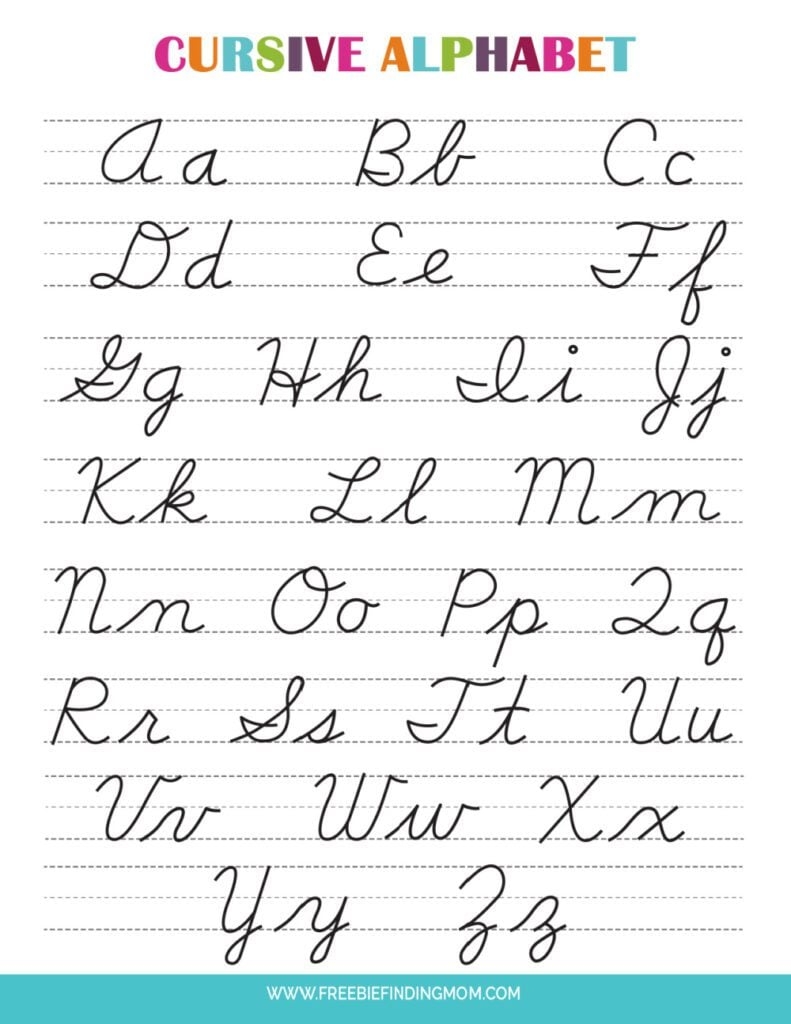 CURSIVE ALPHABET
Aa Bb Cc
Dd Ee Ff
Gg Hh Ii Jj
Kk Ll Mm
Nn Oo Pp Qq
Rr Ss Tt Uu
Vv Ww Xx
Yy Zz
WWW.FREEBIEFINDINGMOM.COM